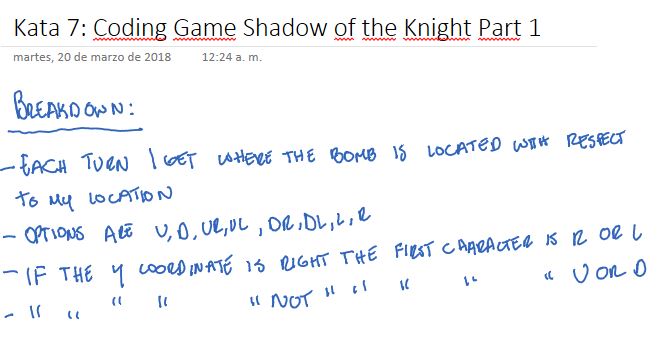 Kata 7: Coding Game Shadow of the Knight Part 1
martes, 20 de marzo de 2018 12:24 a. m.
BREAKDOWN:
- EACH TURN I GET WHERE THE BOMB IS LOCATED WITH RESPECT
TO MY LOCATION
- OPTIONS ARE U, D, UR, UL, DR, DL, L, R
- IF THE Y COORDINATE IS RIGHT THE FIRST CHARACTER IS R OR L
- " " " " " NOT " " " " " U OR D